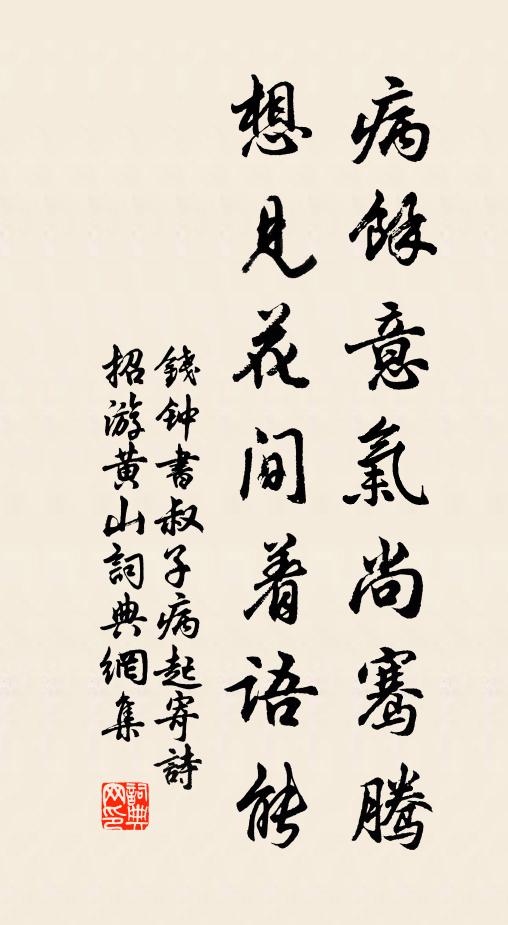 病餘意氣尚騫騰
想見花間着語能
錢钟書叔子病起寄詩
招游黄山詞典網集
詞典
网印